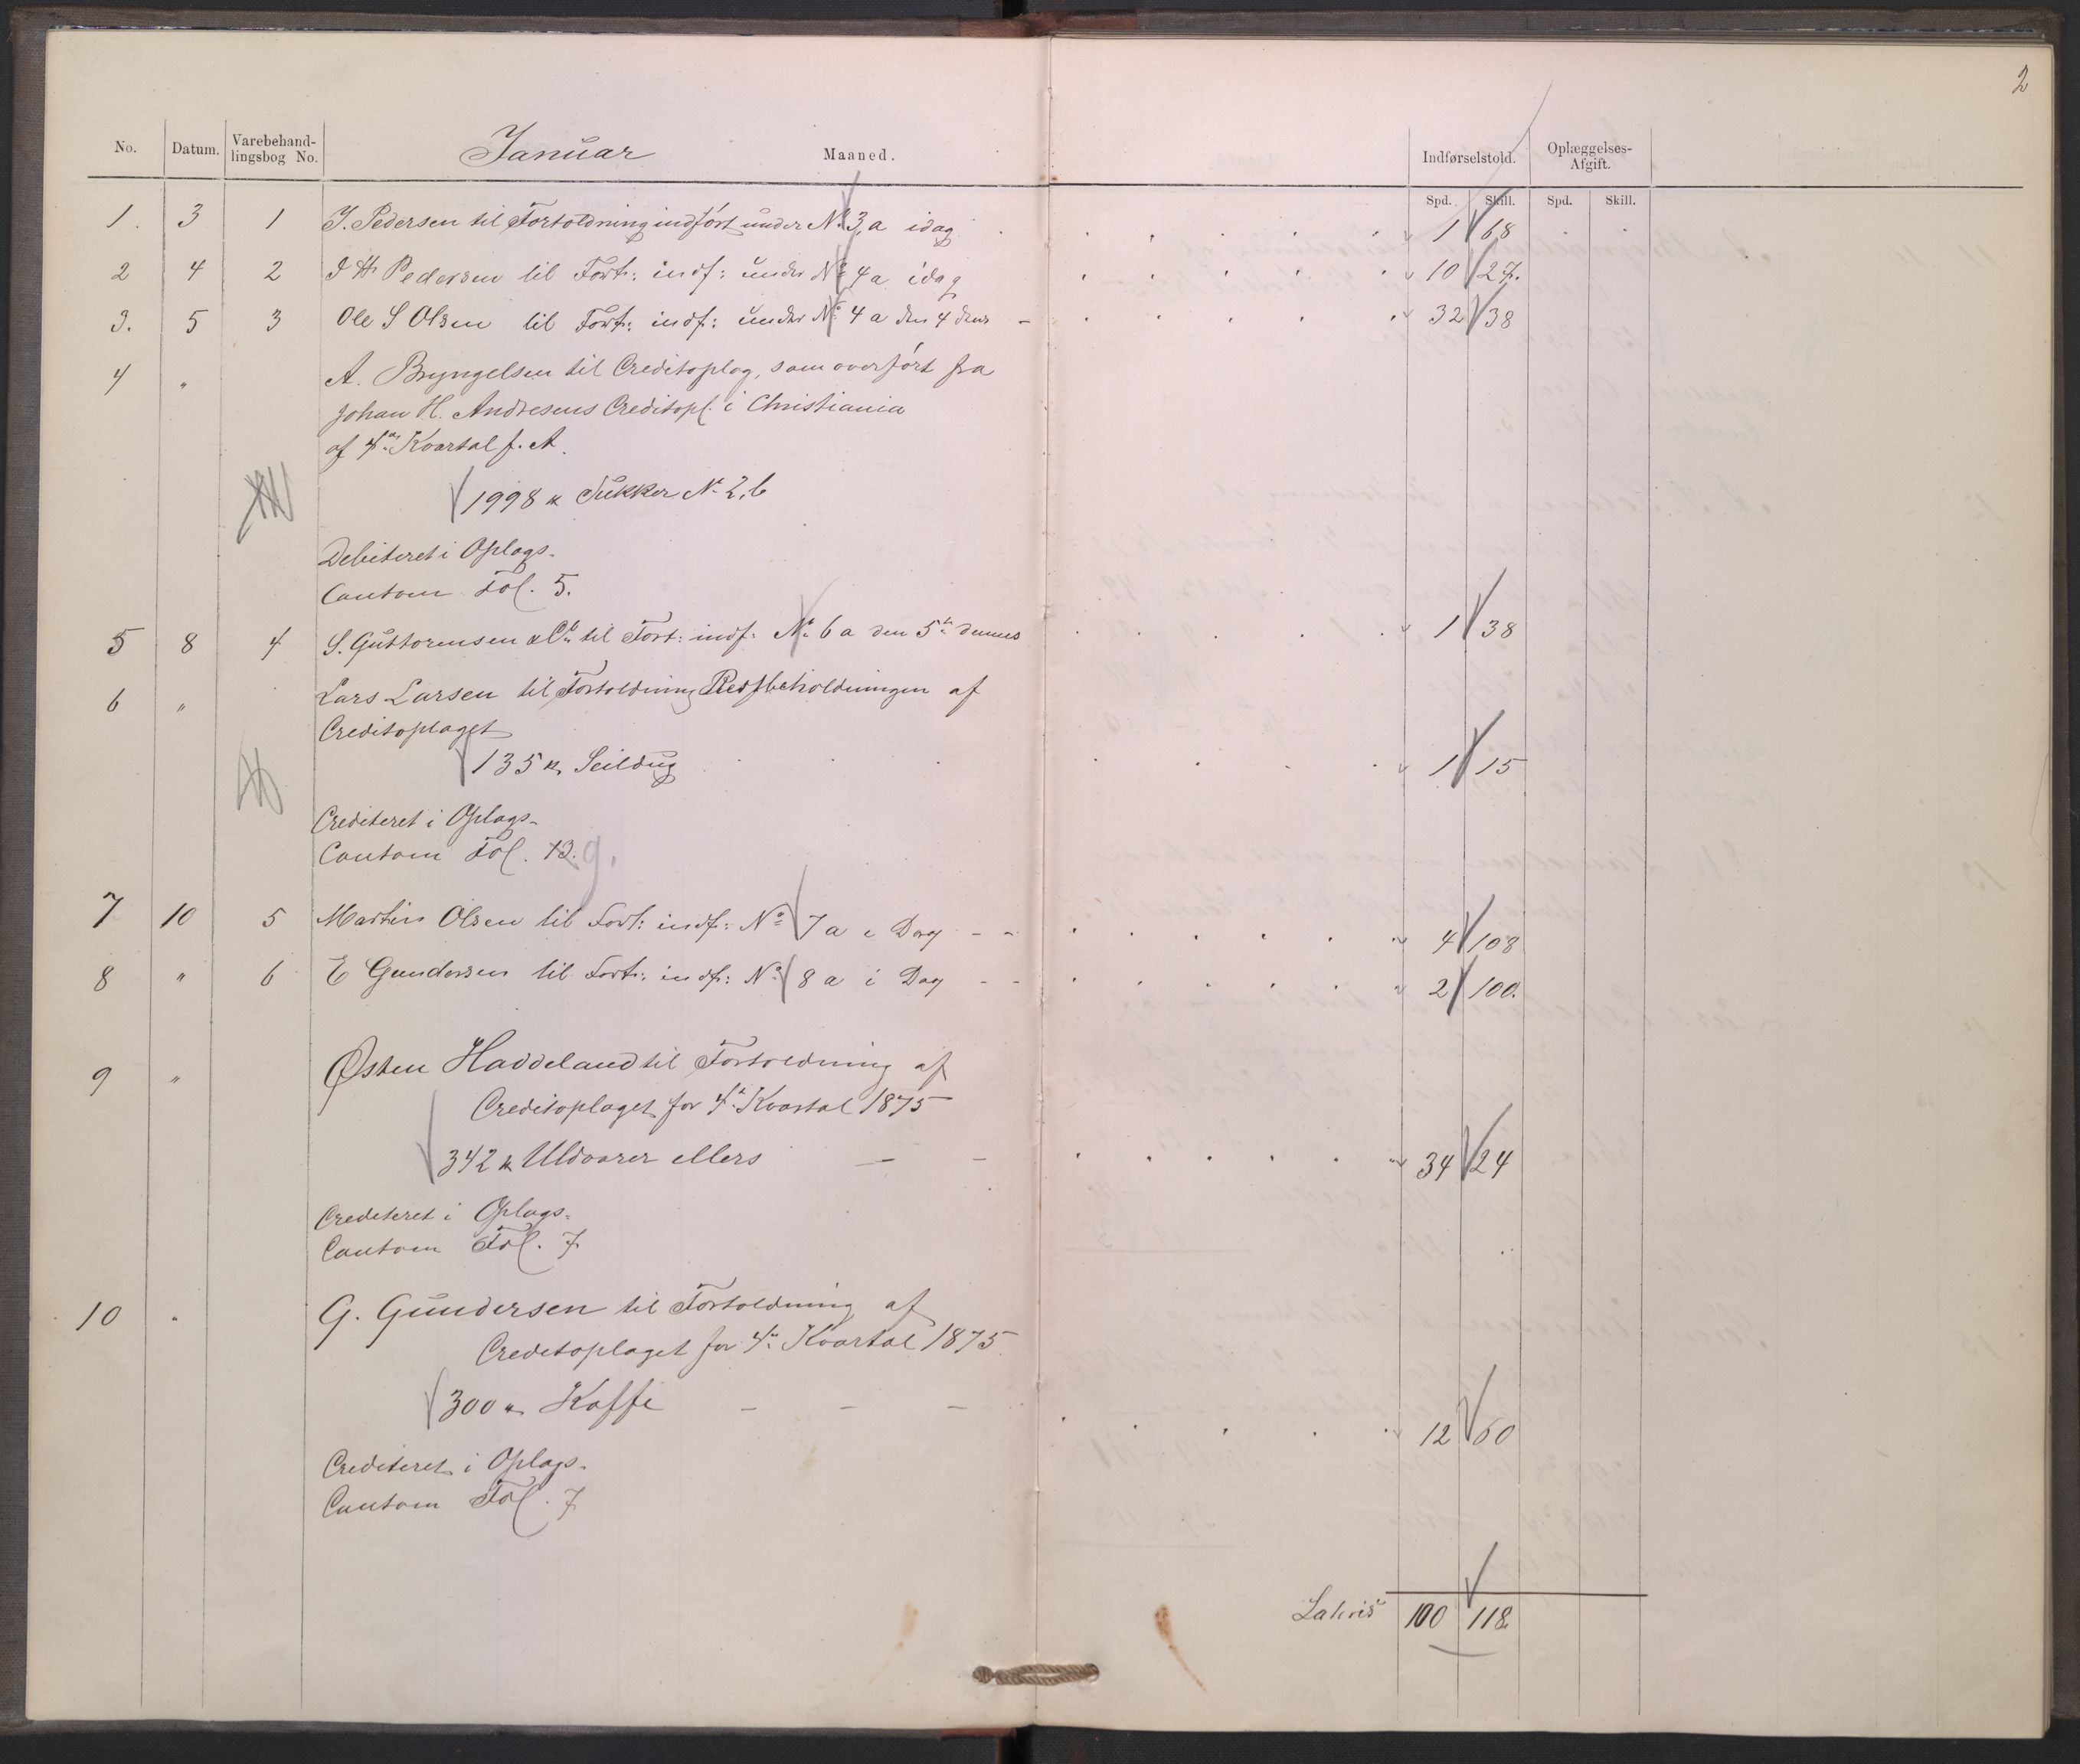 2
No. Datum. Varebehand-lingsbog No. Januar Maaned. Indførselstold. Oplæggelses-Afgift.
Spd. Skill. Spd. Skill.
1. 3 1 J. Pedersen til Fortoldning indført under No 3,a idag 1 68
2 4 2 Pedersen til Fort: indf: under No 4 a idag 10 27.
3. 5 3 Ole S Olsen til Fort: indf: under No 4 a den 4 dens - 32 38
4 " A. Bryngelsen til Creditoplag, som overført fra
Johan H. Andresens Creditopl. i Christiania
af 4de Kvartal f. A.
1998 Sukker No 2,b
Debiteret i Oplags-
Contoen Fol. 5.
5 8 4 S. Guttormsen & Co til Fort: indf: No 6 a den 5te dennes 1 38
6 " Lars Larsen til Fortoldning Restbeholdningen af
Creditoplaget
135 Seildug 1 15
Crediteret i Oplags-
Contoen Fol. 13. 9.
7 10 5 Martin Olsen til Fort: indf: No 7 a i Dag - - 4 108
8 " 6 E Gundersen til Fort: indf: No 8 a i Dag - - 2 100.
9 " Østen Haddeland til Fortoldning af
Creditoplaget for 4de Kvartal 1875
342 Uldvarer ellers - - 34 24
Crediteret i Oplags-
Contoen Fol. 7
10 " G. Gundersen til Fortoldning af
Creditoplaget for 4de Kvartal 1875
300 Kaffe - - - 12 60
Crediteret i Oplags-
Contoen Fol. 7
Lateris 100 118